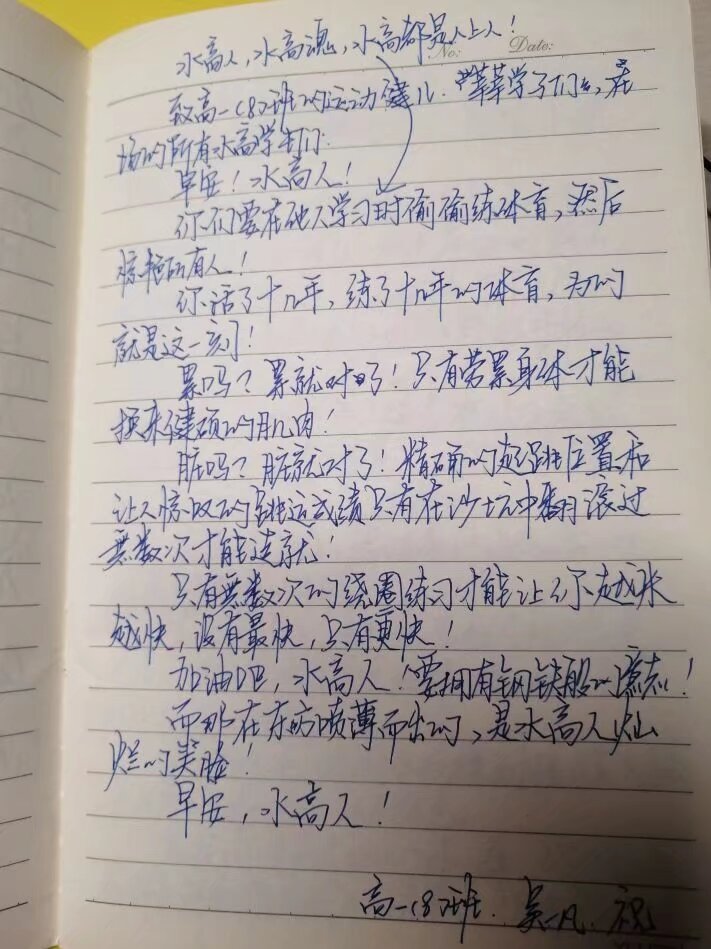 水高人,水高魂,水高都是人上人!
No: Date:
致高一(8)班的运动健儿.莘莘学子们,在
场的所有水高学生们:
早安!水高人!
你们要在他人学习时偷偷练体育,然后
惊艳所有人!
你活了十几年,练了十几年的体育,为的
就是这一刻!
累吗?累就对了!只有劳累身体才能
换来健硕的肌肉!
脏吗?脏就对了!精确的起跳位置和
让人惊叹的跳远成绩只有在沙坑中翻滚过
無数次才能造就!
只有無数次的绕圈练习才能让你越来
越快,没有最快,只有更快!
加油吧,水高人!要拥有钢铁般的意志!
而那在东方喷薄而出的,是水高人灿
烂的笑脸!
早安,水高人!
高一(8)班.吴一凡.祝